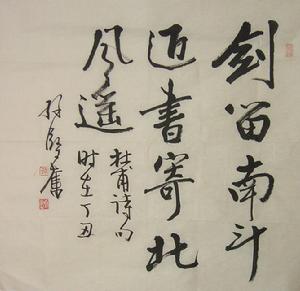 剑留南斗
近书寄北
风遥
杜甫诗句
时在丁丑